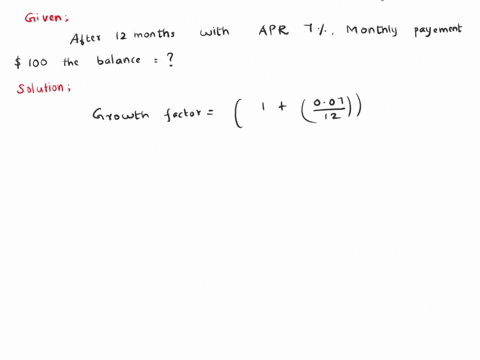 Given;
After 12 months with APR 7%. Monthly payement
$ 100 the balance = ?
Solution;
Growth factor = ( 1 + (0.07/12))